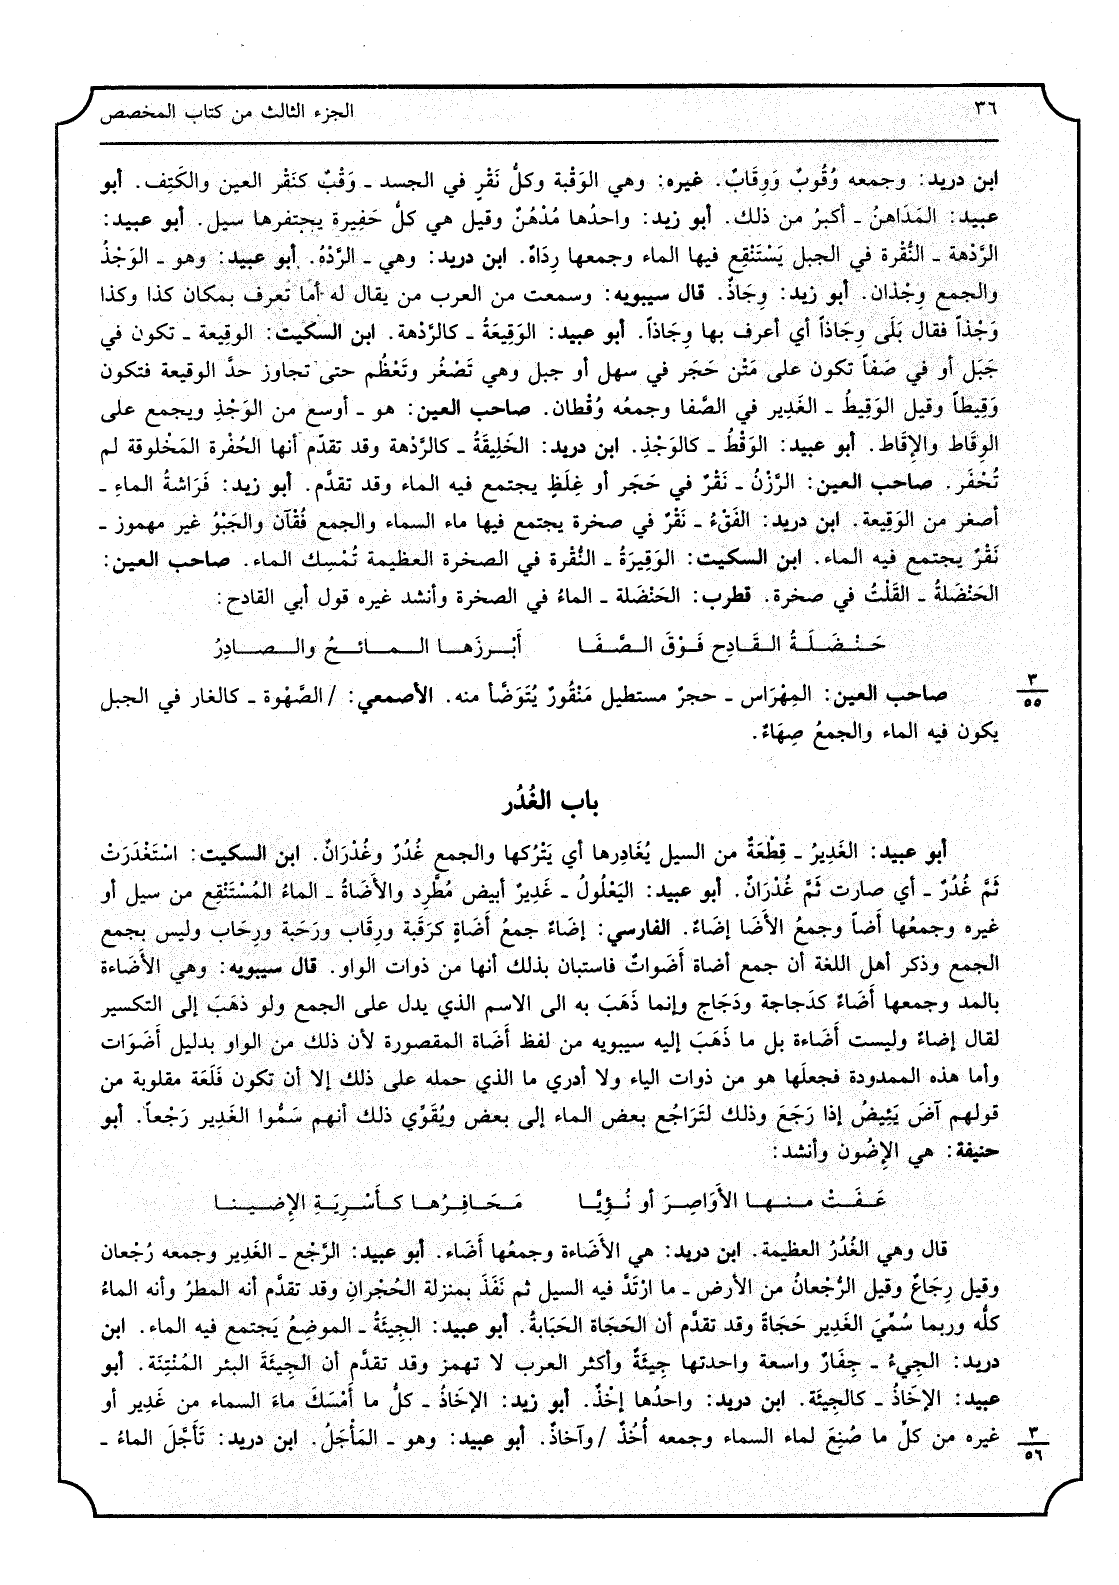 ٣٦
الجزء الثالث من كتاب المخصص
ابن دريد: وجمعه وُقُوبٌ وَوِقَابٌ. غيره: وهي الوَقْبة وكلُّ نَقْرٍ في الجسد ـ وَقْبٌ كنَقْر العين والكَتِف. أبو
عبيد: المَدَاهنُ ـ أكبرُ من ذلك. أبو زيد: واحدُها مُدْهُنٌ وقيل هي كلُّ حَفِيرة يحتفرها سيل. أبو عبيد:
الرَّدْهة ـ النُّقْرة في الجبل يَسْتَنْقِع فيها الماء وجمعها رِدَاهٌ. ابن دريد: وهي ـ الرَّدْهُ. أبو عبيد: وهو ـ الوَجْذُ
والجمع وِجْذان. أبو زيد: وِجَاذٌ. قال سيبويه: وسمعت من العرب من يقال له أما تَعرف بمكان كذا وكذا
وَجْذاً فقال بَلَى وِجَاذاً أي أعرف بها وِجَاذاً. أبو عبيد: الوَقِيعَةُ ـ كالرَّدْهة. ابن السكيت: الوقيعة ـ تكون في
جَبَل أو في صَفاً تكون على مَتْن حَجَر في سهل أو جبل وهي تَصْغُر وتَعْظُم حتى تجاوز حدَّ الوقيعة فتكون
وَقِيطاً وقيل الوَقِيطُ ـ الغَدِير في الصَّفا وجمعُه وُقْطان. صاحب العين: هو ـ أوسع من الوَجْذِ ويجمع على
الوِقَاط والإقَاط. أبو عبيد: الوَقْطُ ـ كالوَجْذِ. ابن دريد: الخَلِيقَةُ ـ كالرَّدْهة وقد تقدّم أنها الحُفْرة المَخْلوقة لم
تُحْفَر. صاحب العين: الرَّزْنُ ـ نَقْرٌ في حَجَر أو غِلَظٍ يجتمع فيه الماء وقد تقدَّم. أبو زيد: فَرَاشةُ الماءِ ـ
أصغر من الوَقِيعة. ابن دريد: الفَقْءُ ـ نَقْرٌ في صخرة يجتمع فيها ماء السماء والجمع فُقْآن والجَبْوُ غير مهموز ـ
نَقْرٌ يجتمع فيه الماء. ابن السكيت: الوَقِيرَةُ ـ النُّقْرة في الصخرة العظيمة تُمْسِك الماء. صاحب العين:
الحَنْضَلةُ ـ القَلْتُ في صخرة. قطرب: الحَنْضَلة ـ الماءُ في الصخرة وأنشد غيره قول أبي القادح:
حَنْضَلَةُ القَادِحِ فَوْقَ الصَّفَا    أَبْرزَها المائحُ والصادِرُ
صاحب العين: المِهْرَاس ـ حجرٌ مستطيل مَنْقُورٌ يُتَوَضَّأ منه. الأصمعي: /الصَّهْوة ـ كالغار في الجبل
٣
٥٥
يكون فيه الماء والجمعُ صِهَاءٌ.
باب الغُدُر
أبو عبيد: الغَدِيرُ ـ قِطْعَةٌ من السيل يُغَادِرها أي يَتْرُكها والجمع غُدُرٌ وغُدْرَانٌ. ابن السكيت: اسْتَغْدَرَتْ
ثَمَّ غُدُرٌ ـ أي صارت ثَمَّ غُدْرَانٌ. أبو عبيد: اليَعْلُولُ ـ غَدِيرٌ أبيض مُطَّرِد والأَضَاةُ ـ الماءُ المُسْتَنْقِع من سيل أو
غيره وجمعُها أَضاً وجمعُ الأَضَا إضَاءٌ. الفارسي: إضَاءٌ جمعُ أَضَاةٍ كرَقَبة ورِقَاب ورَحَبة ورِحَاب وليس بجمع
الجمع وذكر أهل اللغة أن جمع أضاة أَضَواتٌ فاستبان بذلك أنها من ذوات الواو. قال سيبويه: وهي الأَضَاءة
بالمد وجمعها أَضَاءٌ كدَجاجة ودَجَاج وإنما ذَهَبَ به الى الاسم الذي يدل على الجمع ولو ذهَبَ إلى التكسير
لقال إضاءٌ وليست أَضَاءة بل ما ذَهَبَ إليه سيبويه من لفظ أَضَاة المقصورة لأن ذلك من الواو بدليل أَضَوَات
وأما هذه الممدودة فجعلَها هو من ذوات الياء ولا أدري ما الذي حمله على ذلك إلا أن تكون فَلَعَة مقلوبة من
قولهم آضَ يَئِيضُ إذا رَجَعَ وذلك لتَرَاجُع بعض الماء إلى بعض ويُقَوِّي ذلك أنهم سَمُّوا الغَدِير رَجْعاً. أبو
حنيفة: هي الإِضُون وأنشد:
عَفَتْ منها الأَوَاصِرَ أو نُؤِيًّا    مَحَافِرُها كأَسْرِيَةِ الإِضينا
قال وهي الغُدُرُ العظيمة. ابن دريد: هي الأَضَاءة وجمعُها أَضَاء. أبو عبيد: الرَّجْع ـ الغَدِير وجمعه رُجْعان
وقيل رِجَاعٌ وقيل الرُّجْعانُ من الأرض ـ ما ارْتَدَّ فيه السيل ثم نَفَذَ بمنزلة الحُجْرانِ وقد تقدَّم أنه المطرُ وأنه الماءُ
كلُّه وربما سُمِّيَ الغَدِير حَجَاةً وقد تقدَّم أن الحَجَاة الحَبَابةُ. أبو عبيد: الجِيئَةُ ـ الموضِعُ يَجتمع فيه الماء. ابن
دريد: الجِيءُ ـ حِفَارٌ واسعة واحدتها جِيئَةٌ وأكثر العرب لا تهمز وقد تقدَّم أن الجِيئَةَ البئر المُنْتِنَة. أبو
عبيد: الإخَاذُ ـ كالجِيئَة. ابن دريد: واحدُها إخْذٌ. أبو زيد: الإخَاذُ ـ كلُّ ما أَمْسَكَ ماءَ السماء من غَدِير أو
غيره من كلِّ ما صُنِعَ لماء السماء وجمعه أُخُذٌ /وآخاذٌ. أبو عبيد: وهو ـ المَأْجَلُ. ابن دريد: تَأَجَّلَ الماءُ ـ
٣
٥٦